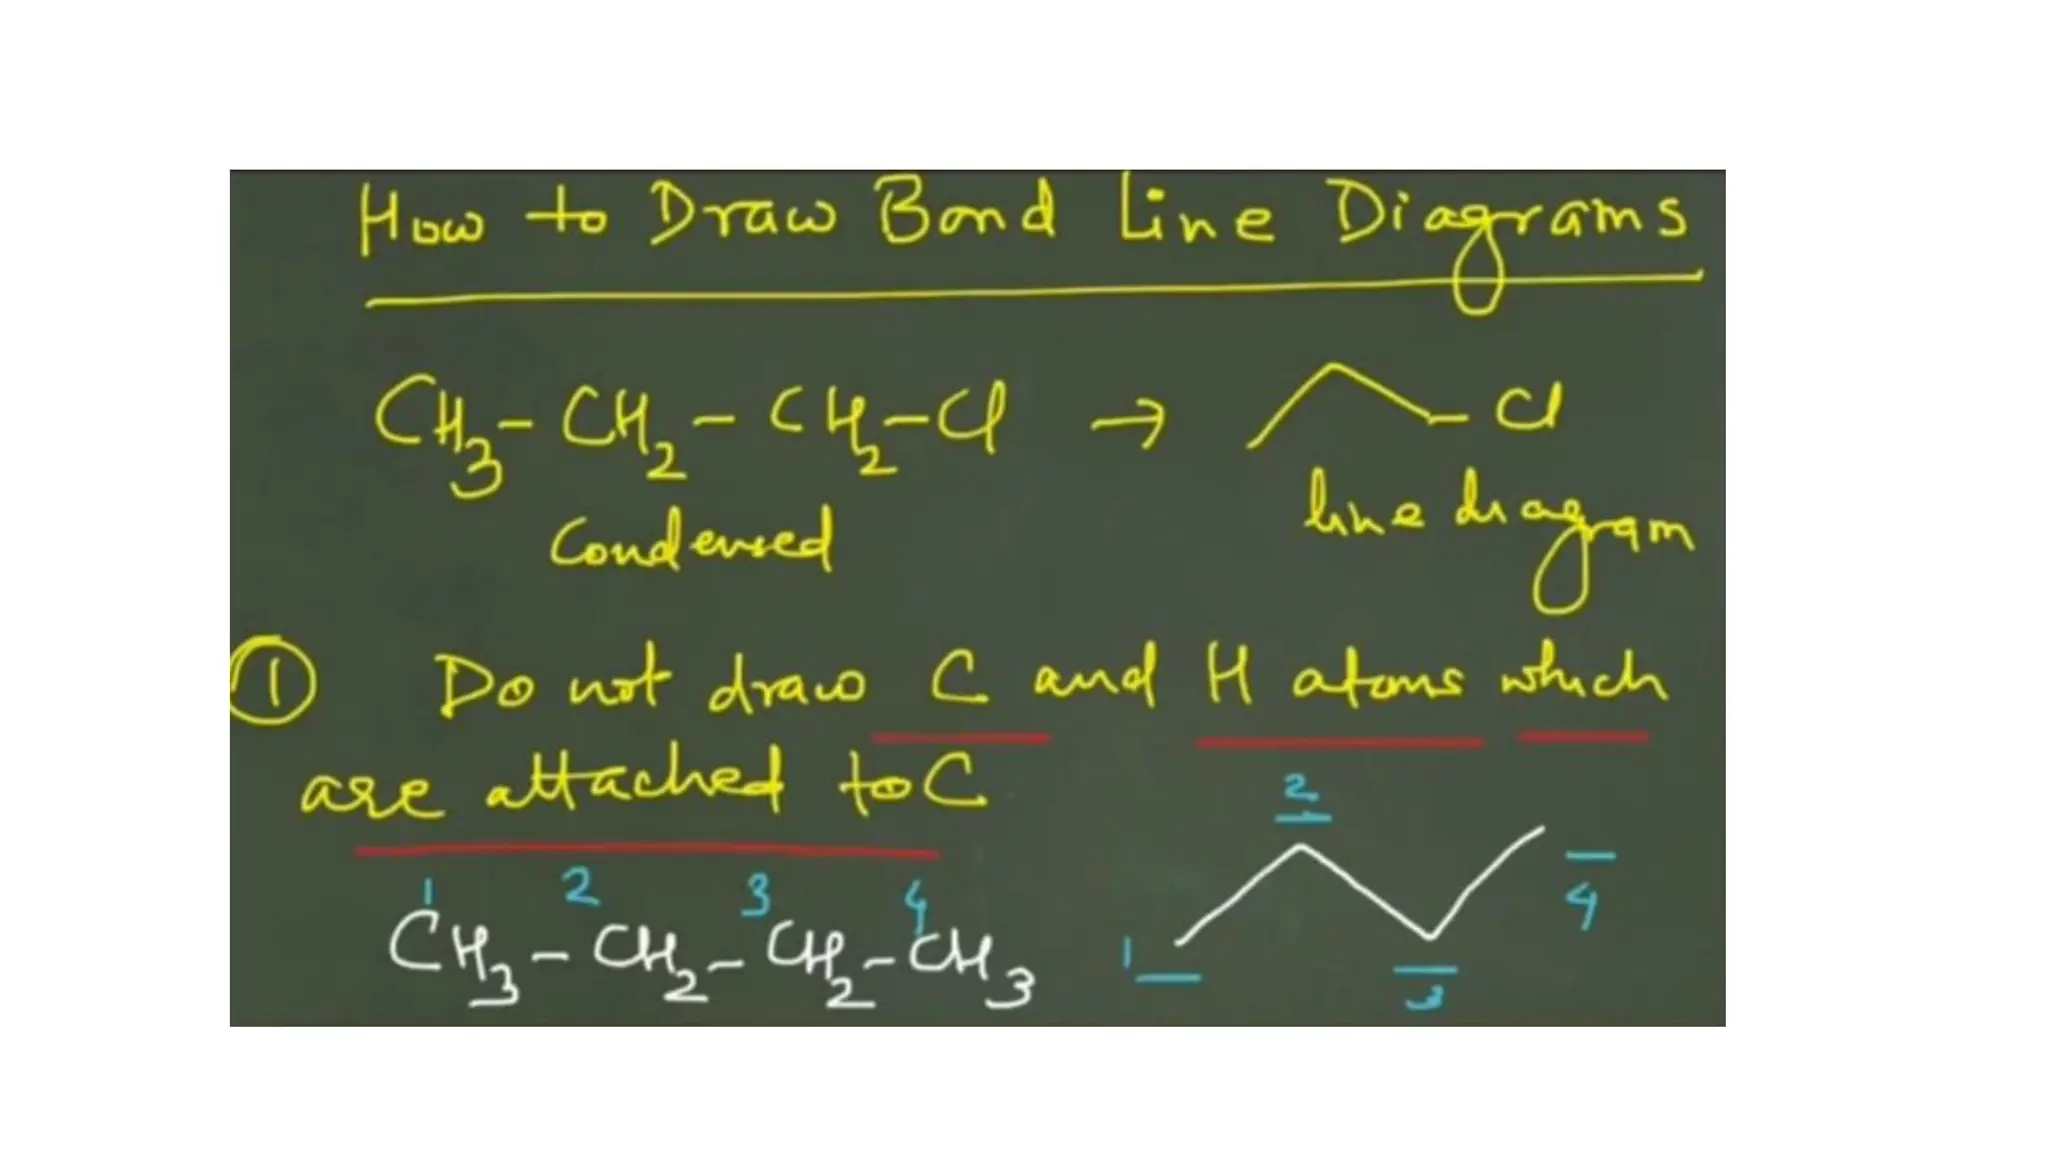 How to Draw Bond Line Diagrams
CH₃-CH₂-CH₂-Cl → Cl
Condensed
line diagram
① Do not draw C and H atoms which
are attached to C
1 2 3 4
CH₃-CH₂-CH₂-CH₃
2
4
1
3